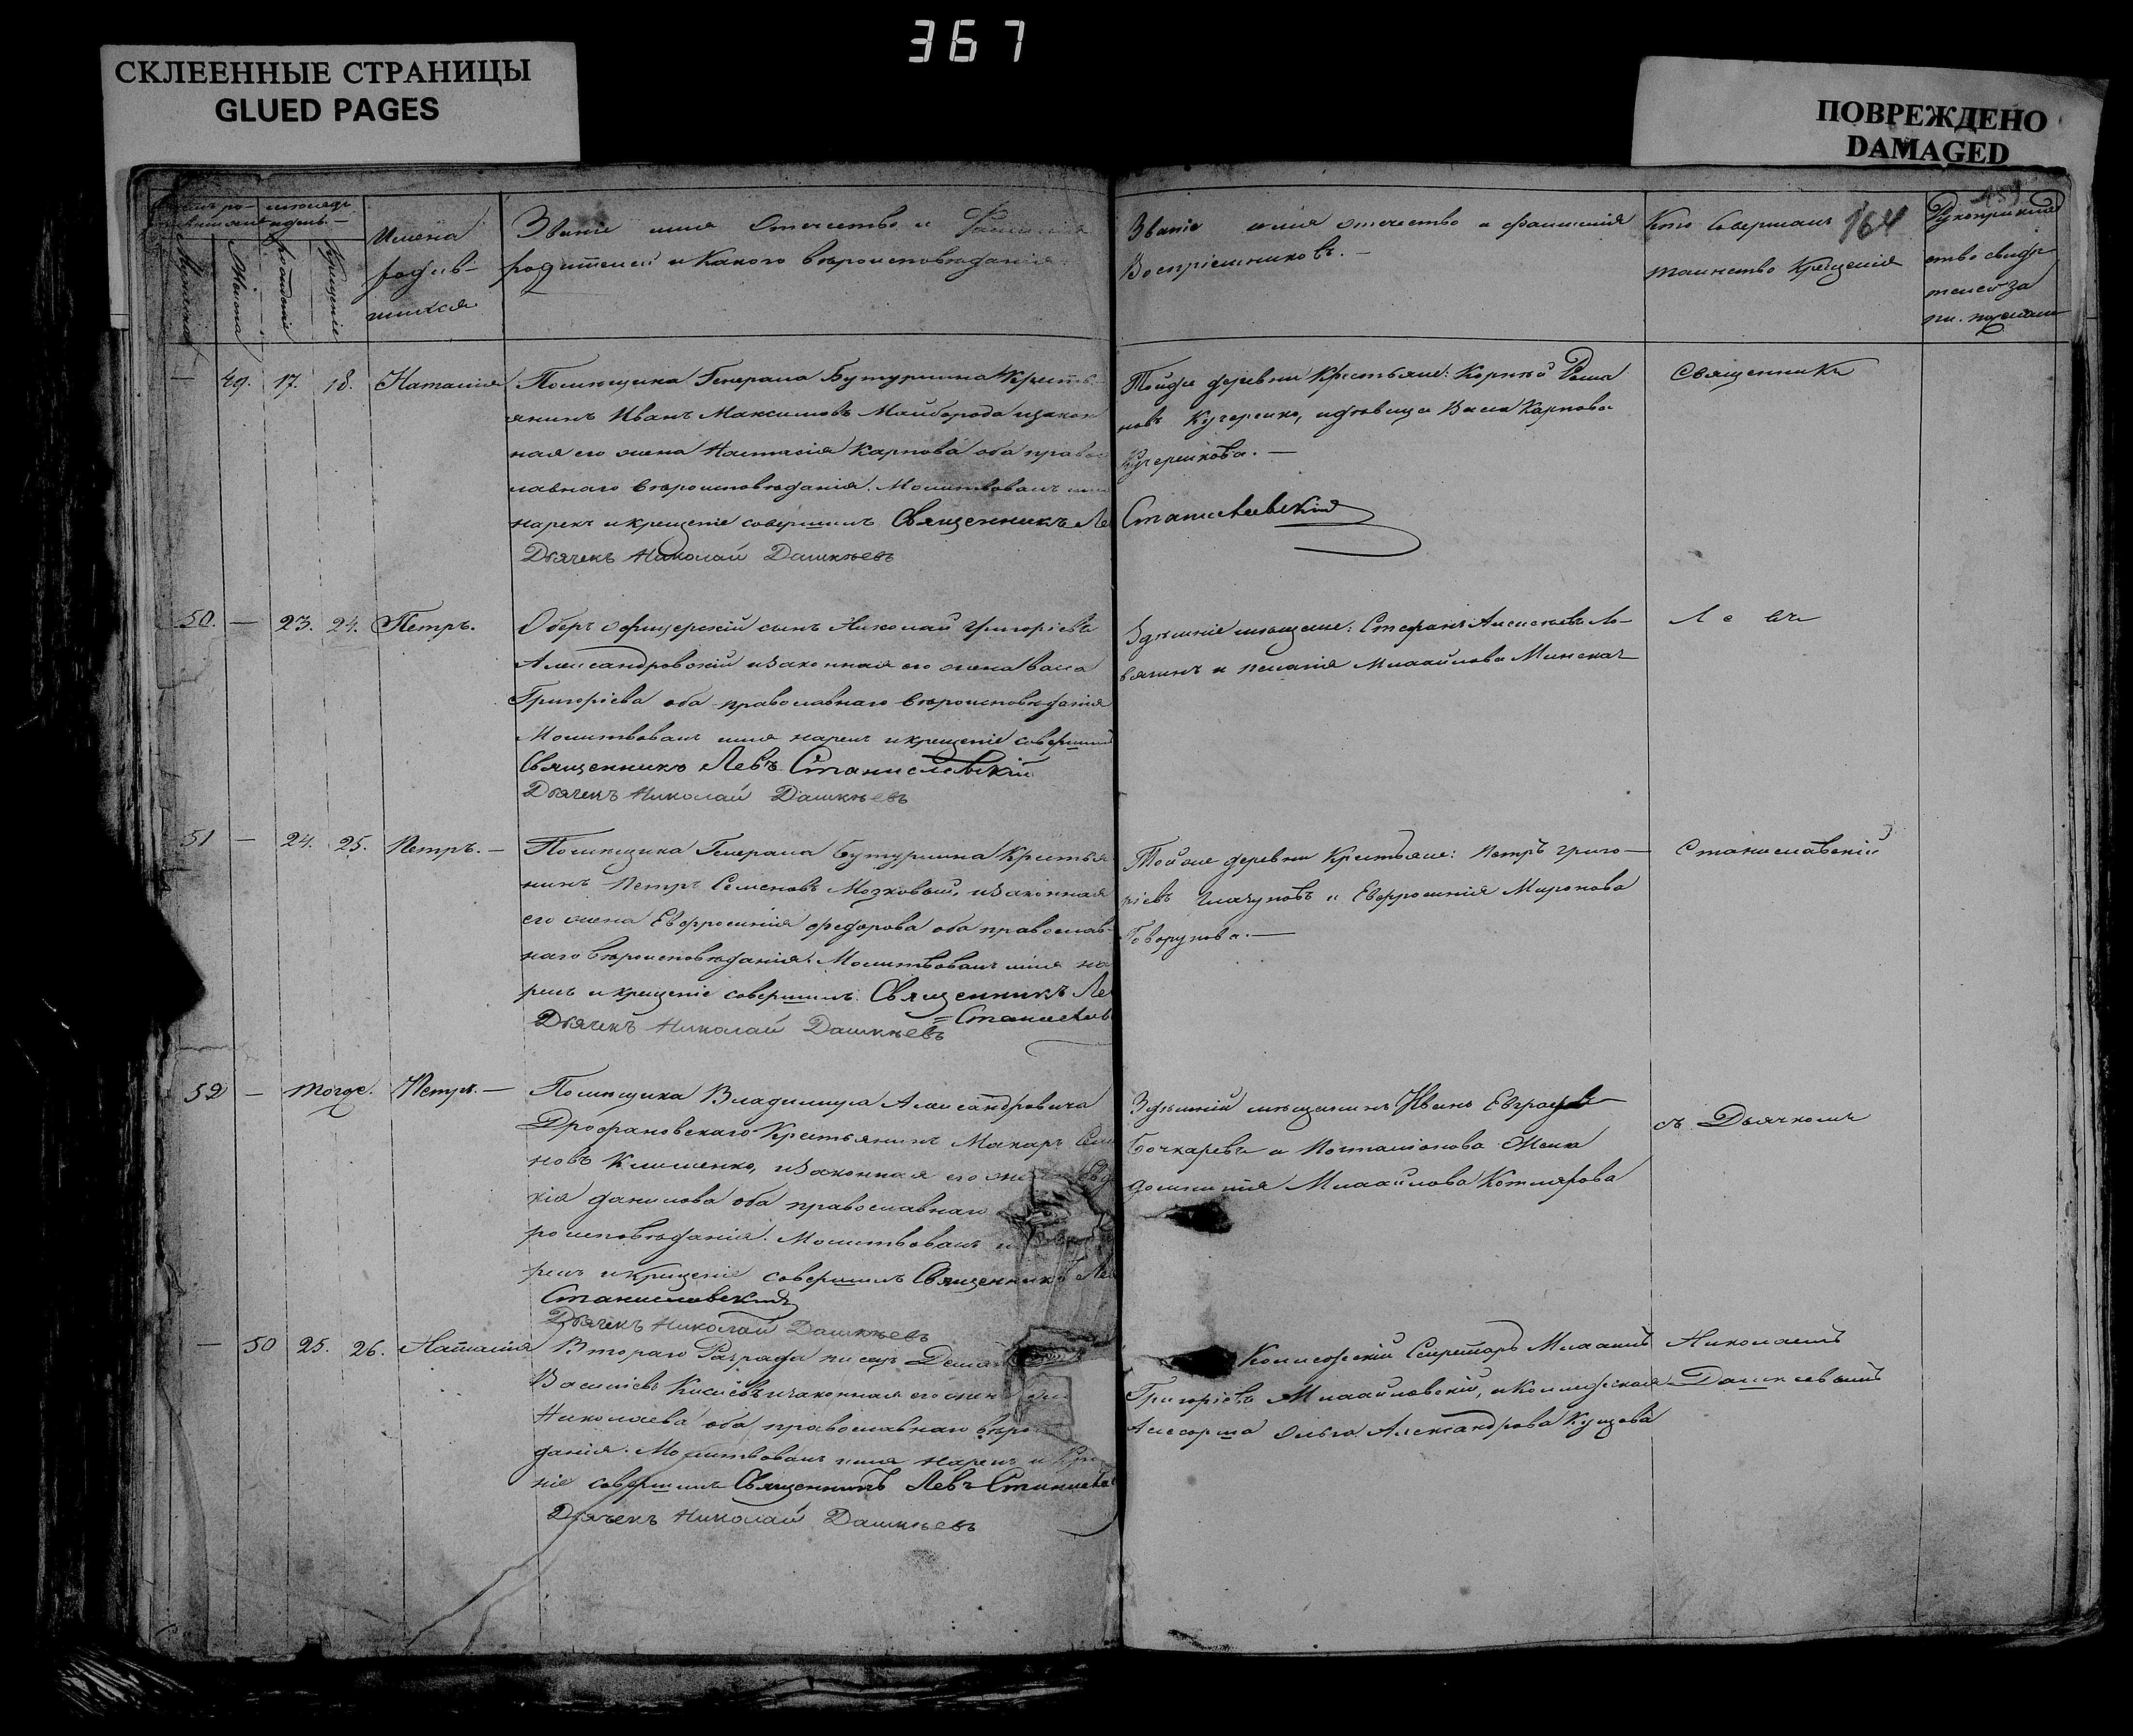 367
СКЛЕЕННЫЕ СТРАНИЦЫ
GLUED PAGES
ПОВРЕЖДЕНО
DAMAGED
164
Имена
родив-
шихся
Званіе имя Отчество и
родителей и какого вѣроисповѣданія
Званіе имя отчество и фамилія
Воспріемниковъ. —
Кто совершалъ
таинство Крещенія
— 49. 17. 18. Наталія
Помѣщика Генерала Бутурлина Кресть-
янинъ Иванъ Максимовъ Майборода и закон
ная его жена Настасія Карпова оба правос
лавнаго вѣроисповѣданія. Молитвовалъ имя
нарекъ и крещеніе совершилъ Священникъ Ле
Дьячекъ Николай Дашкѣевъ
Тойже деревни Крестьяне: Корнѣй Рома
новъ Кучеренко, и дѣвица Васса Карпова
Кучеренкова. —
Станиславскій
Священникъ
50. — 23. 24. Петръ.
Оберъ офицерскій сынъ Николай Григоріевъ
Александровскій и законная его жена Васса
Григоріева оба православнаго вѣроисповѣданія
Молитвовалъ имя нарекъ и крещеніе совершилъ
Священникъ Левъ Станиславскій
Дьячекъ Николай Дашкѣевъ
Здѣшніе мѣщане: Стефанъ Алексѣевъ Ло-
вягинъ и Пелагія Михайлова
Левъ
51 — 24. 25. Петръ. —
Помѣщика Генерала Бутурлина Крестья
нинъ Петръ Семеновъ Мозковой, и законная
его жена Евфросинія Федорова оба православ-
наго вѣроисповѣданія. Молитвовалъ имя на
рекъ и крещеніе совершилъ. Священникъ Ле
= Станислав
Дьячекъ Николай Дашкѣевъ
Тойже деревни Крестьяне: Петръ Григо-
ріевъ и Евфросинія Миронова
Говорунова. —
Станиславскій
52 — тогоже. Петръ. —
Помѣщика Владимира Александровича
Крестьянинъ Макаръ Сем
новъ Клименко, и законная его же Евдо
кія Данилова оба православнаго
роисповѣданія. Молитвовалъ
рекъ и крещеніе совершилъ Священникъ Ле
Станиславскій
Дьячекъ Николай Дашкѣевъ
Здѣшній мѣщанинъ Иванъ Евграфовъ
Бочкаревъ и Почталіонова Жена
Домникія Михайлова Котлярова
съ Дьячкомъ
— 50 25. 26. Наталія
Втораго Разряда писарь
Василіевъ Киселевъ и законная его жена
Николаева оба православнаго вѣро
данія. Молитвовалъ имя нарекъ и кре
ніе совершилъ Священникъ Левъ Станислав
Дьячекъ Николай Дашкѣевъ
Колежскій Секретарь Михаилъ
Григорієвъ Михайловскій, и Коллежская
Асесорша Ольга Александрова Купцова
Николаемъ
Дашкеевымъ